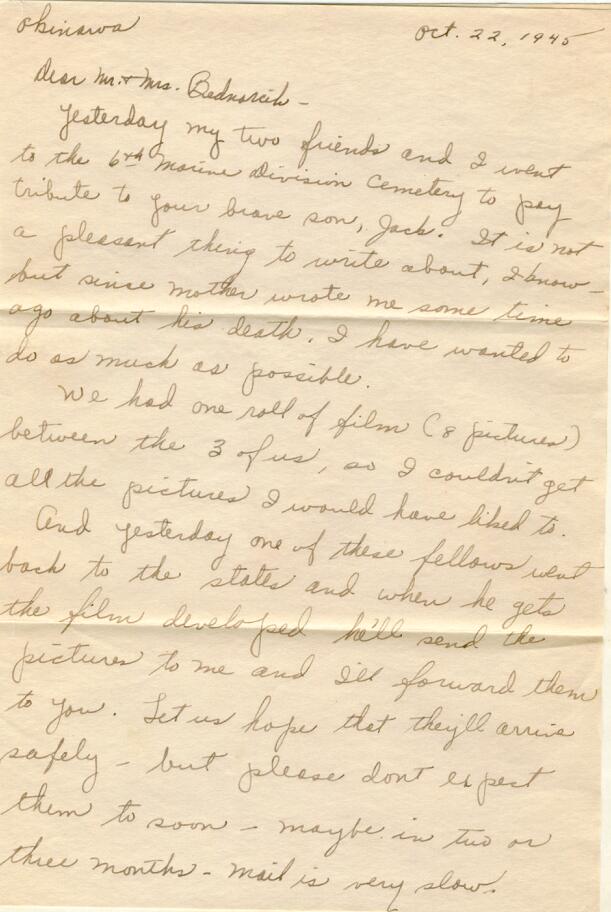 Okinawa
Oct. 22, 1945
Dear Mr. + Mrs. Bednarcik -
Yesterday my two friends and I went
to the 6th Marine Division Cemetery to pay
tribute to your brave son, Jack. It is not
a pleasant thing to write about, I know -
but since mother wrote me some time
ago about his death, I have wanted to
do as much as possible.
We had one roll of film (8 pictures)
between the 3 of us, so I couldn't get
all the pictures I would have liked to.
And yesterday one of these fellows went
back to the states and when he gets
the film developed he'll send the
pictures to me and I'll forward them
to you. Let us hope that they'll arrive
safely - but please dont expect
them to soon - maybe in two or
three months - mail is very slow.